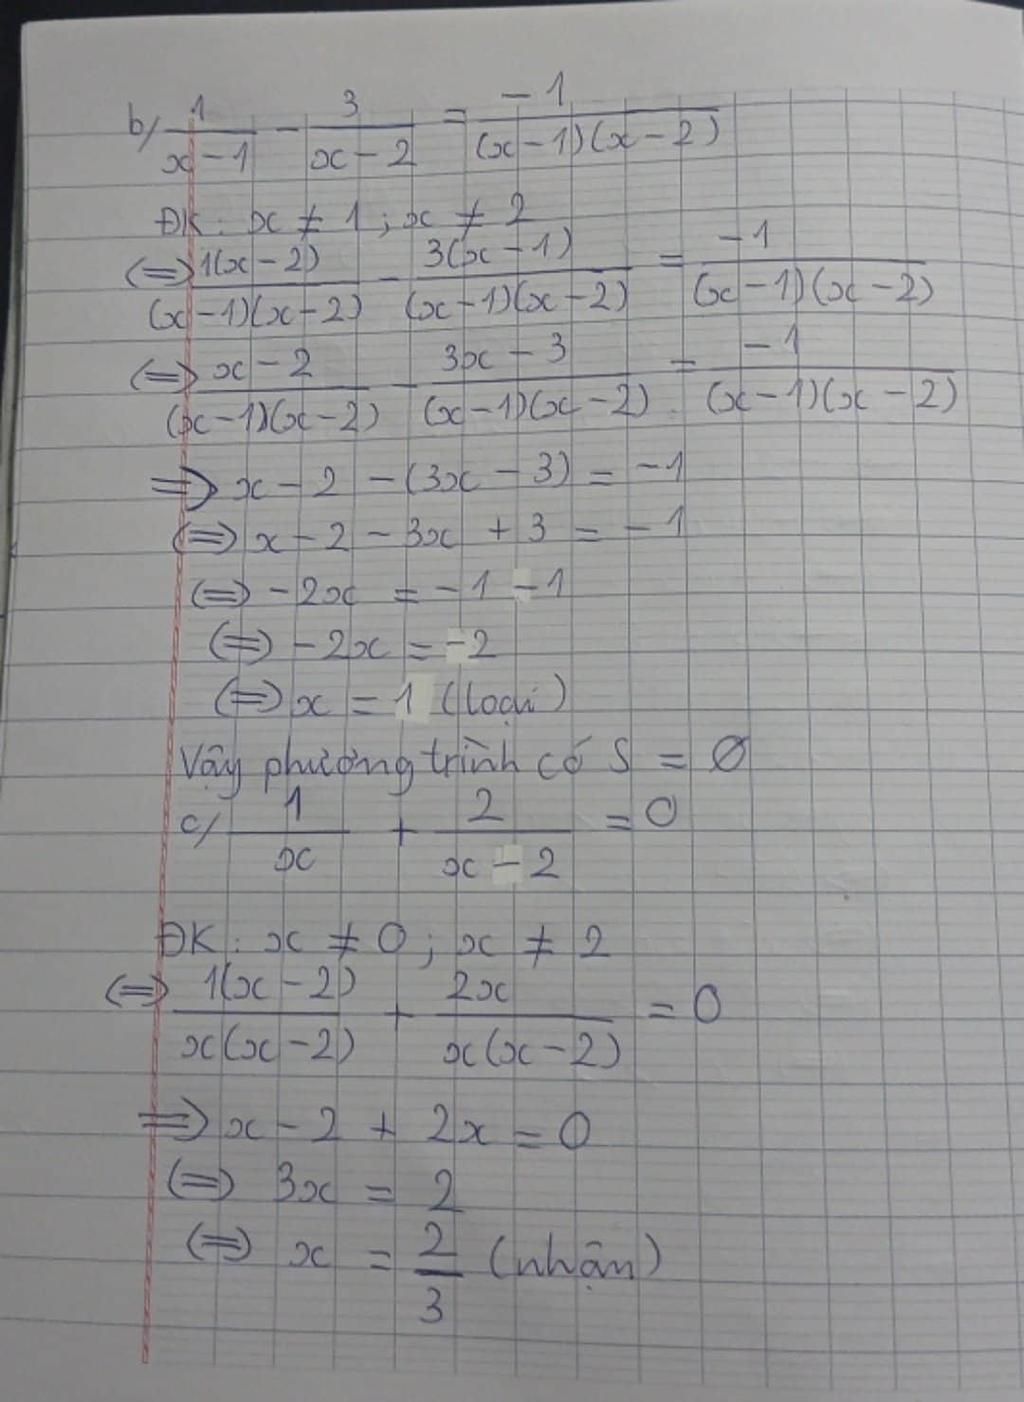 b/ 1/(x-1) - 3/(x-2) = -1/((x-1)(x-2))
ĐK: x ≠ 1 ; x ≠ 2
(=) 1(x-2)/((x-1)(x-2)) - 3(x-1)/((x-1)(x-2)) = -1/((x-1)(x-2))
(=) (x-2)/((x-1)(x-2)) - (3x-3)/((x-1)(x-2)) = -1/((x-1)(x-2))
=> x - 2 - (3x - 3) = -1
(=) x - 2 - 3x + 3 = -1
(=) -2x = -1 - 1
(=) -2x = -2
(=) x = 1 (loại)
Vậy phương trình có S = Ø
c/ 1/x + 2/(x-2) = 0
ĐK: x ≠ 0 ; x ≠ 2
(=) 1(x-2)/(x(x-2)) + 2x/(x(x-2)) = 0
=> x - 2 + 2x = 0
(=) 3x = 2
(=) x = 2/3 (nhận)